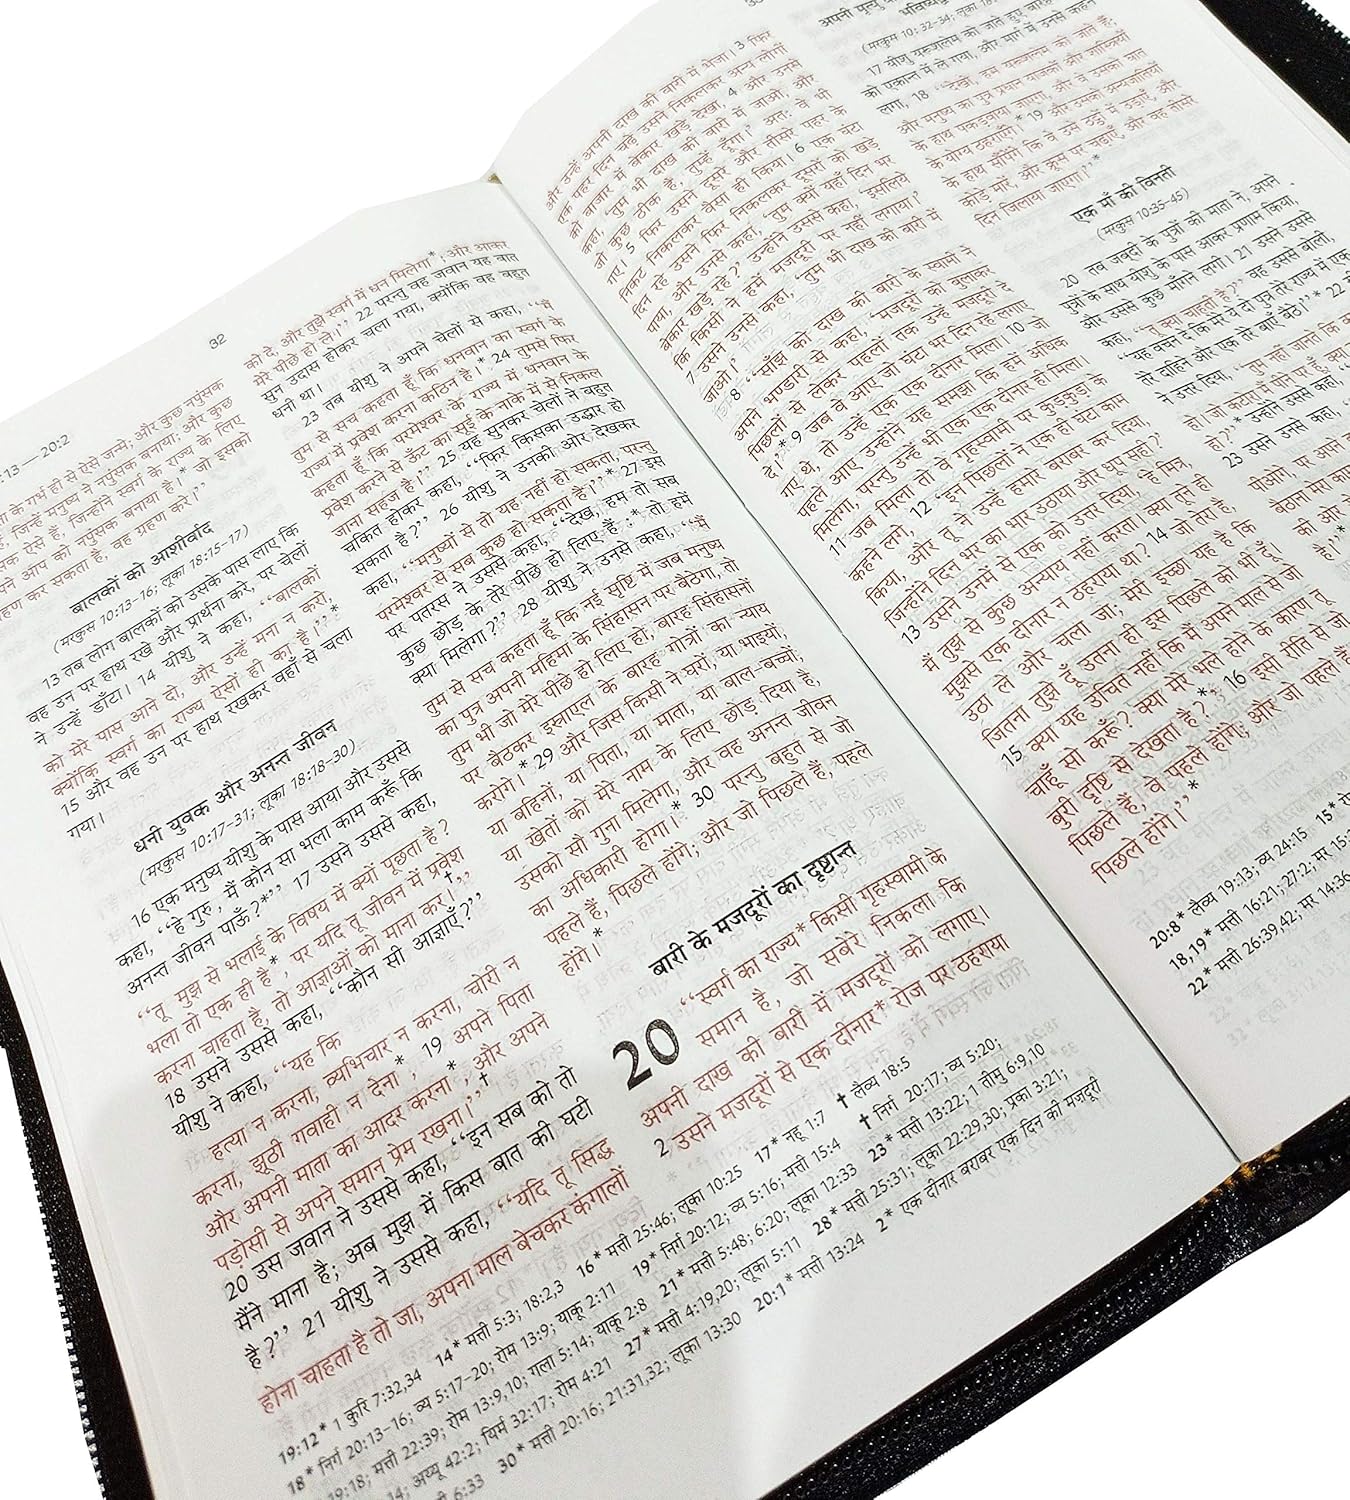 32
13 — 20:2
ता के गर्भ ही से ऐसे जन्मे; और कुछ नपुंसक
जिन्हें मनुष्य ने नपुंसक बनाया; और कुछ
ऐसे हैं, जिन्होंने स्वर्ग के राज्य के लिए
आप को नपुंसक बनाया है।* जो इसको
ग्रहण कर सकता है, वह ग्रहण करे।”
बालकों को आशीर्वाद
(मरकुस 10:13-16; लूका 18:15-17)
13 तब लोग बालकों को उसके पास लाए कि
वह उन पर हाथ रखे और प्रार्थना करे, पर चेलों
ने उन्हें डाँटा। 14 यीशु ने कहा, “बालकों
को मेरे पास आने दो, और उन्हें मना न करो,
क्योंकि स्वर्ग का राज्य ऐसों ही का है।”*
15 और वह उन पर हाथ रखकर वहाँ से चला
गया।
धनी युवक और अनन्त जीवन
(मरकुस 10:17-31; लूका 18:18-30)
16 एक मनुष्य यीशु के पास आया और उससे
कहा, “हे गुरु, मैं कौन सा भला काम करूँ कि
अनन्त जीवन पाऊँ?*” 17 उसने उससे कहा,
“तू मुझ से भलाई के विषय में क्यों पूछता है?
भला तो एक ही है*, पर यदि तू जीवन में प्रवेश
करना चाहता है, तो आज्ञाओं को माना कर।†”
18 उसने उससे कहा, “कौन सी आज्ञाएँ?”
यीशु ने कहा, “यह कि
हत्या न करना, व्यभिचार न करना, चोरी न
करना, झूठी गवाही न देना*, 19 अपने पिता
और अपनी माता का आदर करना*, और अपने
पड़ोसी से अपने समान प्रेम रखना।”†
20 उस जवान ने उससे कहा, “इन सब को तो
मैंने माना है; अब मुझ में किस बात की घटी
है?” 21 यीशु ने उससे कहा, “यदि तू सिद्ध
होना चाहता है तो जा, अपना माल बेचकर कंगालों
को दे, और तुझे स्वर्ग में धन मिलेगा*; और आकर
मेरे पीछे हो ले।” 22 परन्तु वह जवान यह बात
सुन उदास होकर चला गया, क्योंकि वह बहुत
धनी था।
23 तब यीशु ने अपने चेलों से कहा, “मैं
तुम से सच कहता हूँ कि धनवान का स्वर्ग के
राज्य में प्रवेश करना कठिन है।* 24 तुमसे फिर
कहता हूँ कि परमेश्वर के राज्य में धनवान के
प्रवेश करने से ऊँट का सूई के नाके में से निकल
जाना सहज है।” 25 यह सुनकर चेलों ने बहुत
चकित होकर कहा, “फिर किसका उद्धार हो
सकता है?” 26 यीशु ने उनकी ओर देखकर
कहा, “मनुष्यों से तो यह नहीं हो सकता, परन्तु
परमेश्वर से सब कुछ हो सकता है।”* 27 इस
पर पतरस ने उससे कहा, “देख, हम तो सब
कुछ छोड़ के तेरे पीछे हो लिए हैं:* तो हमें
क्या मिलेगा?” 28 यीशु ने उनसे कहा, “मैं
तुम से सच कहता हूँ कि नई सृष्टि में जब मनुष्य
का पुत्र अपनी महिमा के सिंहासन पर बैठेगा, तो
तुम भी जो मेरे पीछे हो लिए हो, बारह सिंहासनों
पर बैठकर इस्राएल के बारह गोत्रों का न्याय
करोगे।* 29 और जिस किसी ने घरों, या भाइयों,
या बहिनों, या पिता, या माता, या बाल-बच्चों,
या खेतों को मेरे नाम के लिए छोड़ दिया है,
उसको सौ गुना मिलेगा, और वह अनन्त जीवन
का अधिकारी होगा।* 30 परन्तु बहुत से जो
पहले हैं, पिछले होंगे; और जो पिछले हैं, पहले
होंगे।*
बारी के मजदूरों का दृष्टान्त
20 “स्वर्ग का राज्य* किसी गृहस्वामी के
समान है, जो सबेरे निकला कि
अपनी दाख की बारी में मजदूरों को लगाए।
2 उसने मजदूरों से एक दीनार* रोज पर ठहराया
19:12* 1 कुरि 7:32,34 14* मत्ती 5:3; 18:2,3 16* मत्ती 25:46; लूका 10:25 17* नहू 1:7 † लैव्य 18:5
18* निर्ग 20:13-16; व्य 5:17-20; रोम 13:9; याकू 2:11 19* निर्ग 20:12; व्य 5:16; मत्ती 15:4 † निर्ग 20:17; व्य 5:20;
19:18; मत्ती 22:39; रोम 13:9,10; गला 5:14; याकू 2:8 21* मत्ती 5:48; 6:20; लूका 12:33 23* मत्ती 13:22; 1 तीमु 6:9,10
14; अय्यू 42:2; यिर्म 32:17; रोम 4:21 27* मत्ती 4:19,20; लूका 5:11 28* मत्ती 25:31; लूका 22:29,30; प्रका 3:21;
6:33 30* मत्ती 20:16; 21:31,32; लूका 13:30 20:1* मत्ती 13:24 2* एक दीनार बराबर एक दिन की मजदूरी
और उन्हें अपनी दाख की बारी में भेजा। 3 फिर
एक पहर दिन चढ़े उसने निकलकर अन्य लोगों
को बाजार में बेकार खड़े देखा, 4 और उनसे
कहा, ‘तुम भी दाख की बारी में जाओ, और
जो कुछ ठीक है, तुम्हें दूँगा।’ अतः वे भी
गए। 5 फिर उसने दूसरे और तीसरे पहर के
निकट निकलकर वैसा ही किया। 6 एक घंटा
दिन रहे उसने फिर निकलकर दूसरों को खड़े
पाया, और उनसे कहा, ‘तुम क्यों यहाँ दिन भर
बेकार खड़े रहे?’ उन्होंने उससे कहा, इसलिये
कि किसी ने हमें मजदूरी पर नहीं लगाया।’
7 उसने उनसे कहा, ‘तुम भी दाख की बारी में
जाओ।’
8 “साँझ को दाख की बारी के स्वामी ने
अपने भण्डारी से कहा, ‘मजदूरों को बुलाकर
पिछलों से लेकर पहलों तक उन्हें मजदूरी दे
दे।’* 9 जब वे आए जो घंटा भर दिन रहे लगाए
गए थे, तो उन्हें एक एक दीनार मिला। 10 जो
पहले आए उन्होंने यह समझा कि हमें अधिक
मिलेगा, परन्तु उन्हें भी एक एक दीनार ही मिला।
11 जब मिला तो वे गृहस्वामी पर कुड़कुड़ा के
कहने लगे, 12 ‘इन पिछलों ने एक ही घंटा काम
किया, और तू ने उन्हें हमारे बराबर कर दिया,
जिन्होंने दिन भर का भार उठाया और धूप सही?’
13 उसने उनमें से एक को उत्तर दिया, ‘हे मित्र,
मैं तुझ से कुछ अन्याय नहीं करता। क्या तू ने ही
मुझसे एक दीनार न ठहराया था? 14 जो तेरा है
उठा ले और चला जा; मेरी इच्छा यह है कि
जितना तुझे दूँ उतना ही इस पिछले को भी दूँ।
15 क्या यह उचित नहीं कि मैं अपने माल से जो
चाहूँ सो करूँ? क्या मेरे भले होने के कारण तू
बुरी दृष्टि से देखता है?*’ 16 इसी रीति से जो
पिछले हैं, वे पहले होंगे; और जो पहले हैं,
पिछले होंगे।”*
(मरकुस 10:32-34; लूका 18
17 यीशु यरूशलेम को जाते हुए बारह
को एकान्त में ले गया, और मार्ग में उनसे कहने
लगा, 18 “देखो, हम यरूशलेम को जाते हैं;
और मनुष्य का पुत्र प्रधान याजकों और शास्त्रियों
के हाथ पकड़वाया जाएगा, और वे उसको घात
के योग्य ठहराएँगे।* 19 और उसको अन्यजातियों
के हाथ सौंपेंगे कि वे उसे ठट्ठों में उड़ाएँ, और
कोड़े मारें, और क्रूस पर चढ़ाएँ, और वह तीसरे
दिन जिलाया जाएगा।”*
एक माँ की विनती
(मरकुस 10:35-45)
20 तब जब्दी के पुत्रों की माता ने, अपने
पुत्रों के साथ यीशु के पास आकर प्रणाम किया,
और उससे कुछ माँगने लगी। 21 उसने उससे
कहा, “तू क्या चाहती है?” वह उससे बोली,
“यह वचन दे कि मेरे ये दो पुत्र तेरे राज्य में एक
तेरे दाहिने और एक तेरे बाएँ बैठें।”* 22
ने उत्तर दिया, “तुम नहीं जानते कि
हो। जो कटोरा मैं पीने पर हूँ,
हो?”* उन्होंने उससे कहा,
23 उसने उनसे कहा,
पीओगे पर अपने
बैठाना मेरा का
की ओर
है।”*
20:8* लैव्य 19:13; व्य 24:15 15*
18,19* मत्ती 16:21; 27:2; मर 15:
22* मत्ती 26:39,42; मर 14:36